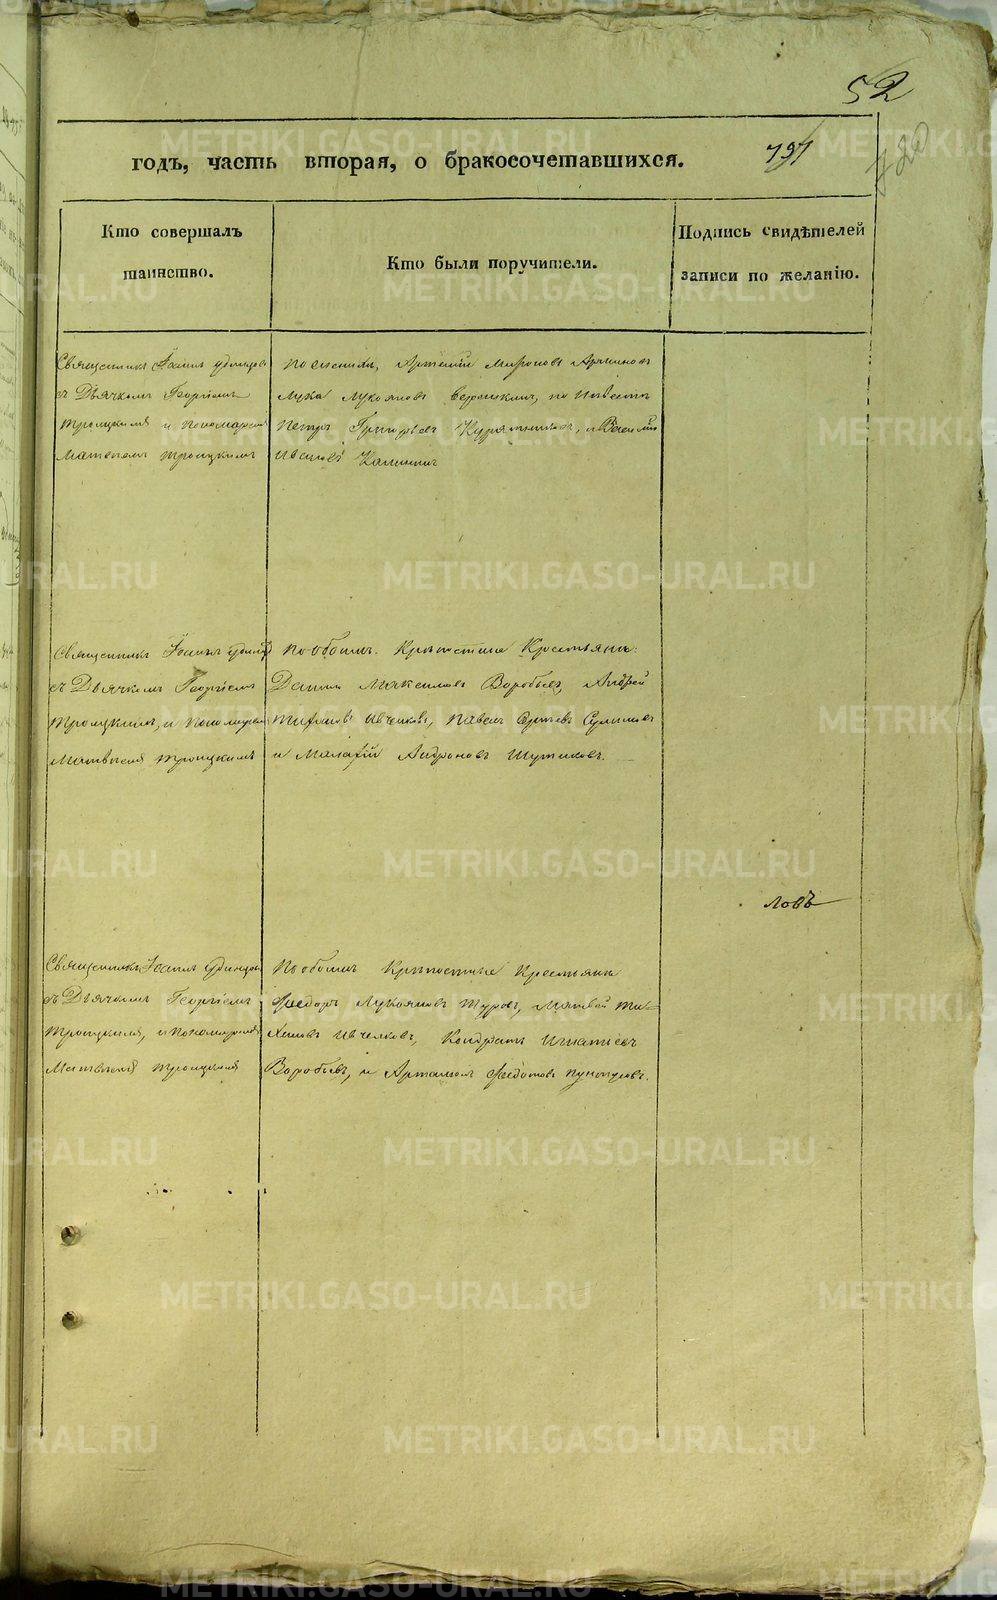 52
годъ, часть вторая, о бракосочетавшихся.
791
720
Кто совершалъ
таинство.
Кто были поручители.
Подпись свидѣтелей
записи по желанію.
Священникъ Іоаннъ
съ Дьячкомъ Георгіемъ
Троицкимъ и Пономаремъ
Матвеемъ Троицкимъ
По женихѣ, Артемій Мироновъ
Лука Лукояновъ по Невѣстѣ
Петръ Григорьевъ Курятниковъ, и Василій
Ивановъ Калининъ
Священникъ Іоаннъ
съ Дьячкомъ Георгіемъ
Троицкимъ, и Пономаремъ
Матвѣемъ Троицкимъ
По обоимъ. Крѣпостные Крестьяне:
Данило Максимовъ Воробьевъ, Андрей
Тихановъ Ивченковъ, Павелъ Сулимовъ
и Малафій Андроновъ Шутиковъ.
ловъ
Священникъ Іоаннъ
съ Дьячкомъ Георгіемъ
Троицкимъ, и Пономаремъ
Матвѣемъ Троицкимъ
По обоимъ Крѣпостные Крестьяне
Ѳедоръ Лукояновъ Туровъ, Матвей Ти-
хановъ Ивченковъ, Кондратъ Игнатьевъ
Воробьевъ, и Артамонъ Ѳедотовъ
METRIKI.GASO-URAL.RU